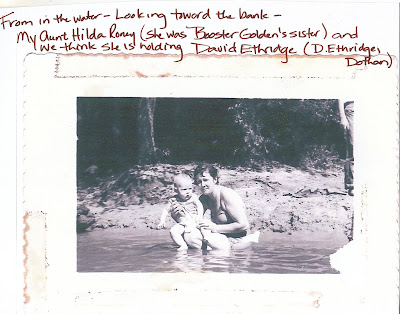 From in the water - Looking toward the bank -
My Aunt Hilda Roney (she was Booster Golden's sister) and
we think she is holding David Ethridge (D. Ethridge,
Dothan)